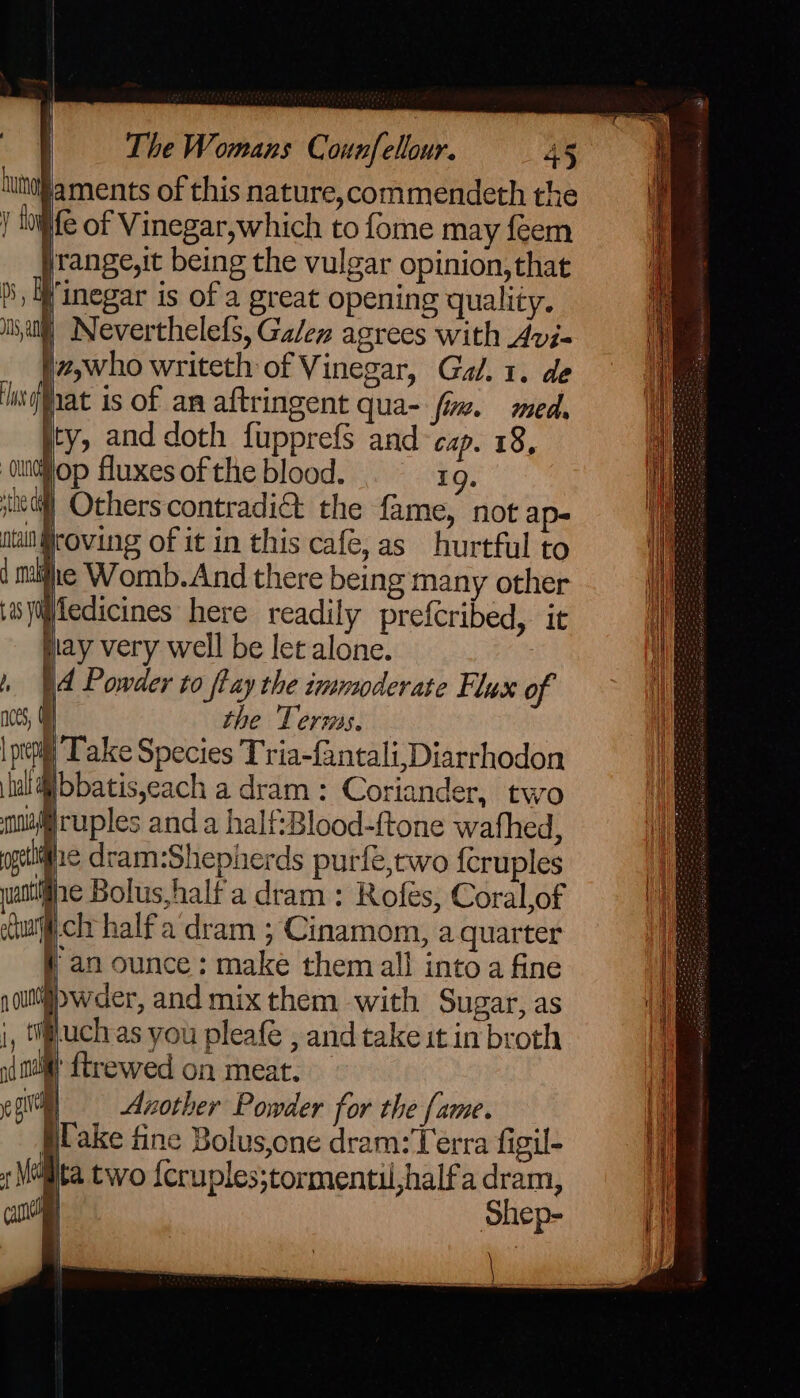 The Womans Counſellour. 45
aments of this nature, commendeth the
ſe of Vinegar, which to ſome may ſeem
range, it being the vulgar opinion, that
inegar is of a great opening quality.
Nevertheleſs, Galen agrees with Avi-
who writeth of Vinegar, Gal. 1. de
hat is of an aſtringent qua- ſim. med.
ty, and doth ſuppreſs and cap. 18,
op fluxes of the blood. 19.
Others contradict the ſame, not ap-
roving of it in this caſe, as hurtful to
he Womb. And there being many other
edicines here readily preſcribed, it
ay very well be let alone.
A Powder to ſtay the immoderate Flux of
the Terms.
Take Species Tria-ſantali, Diarrhodon
bbatis, each a dram : Coriander, two
ruples and a half: Blood-ſtone waſhed,
ne dram: Shepherds purſe, two ſcruples
ne Bolus, half a dram : Roſes, Coral, of
ch half a dram ; Cinamom, a quarter
an ounce : make them all into a fine
owder, and mix them with Sugar, as
uch as you pleaſe , and take it in broth
ſtrewed on meat.
Another Powder for the ſame.
Take fine Bolus, one dram: Terra ſigil-
ta two ſcruples; tormentil, half a dram,
Shep-